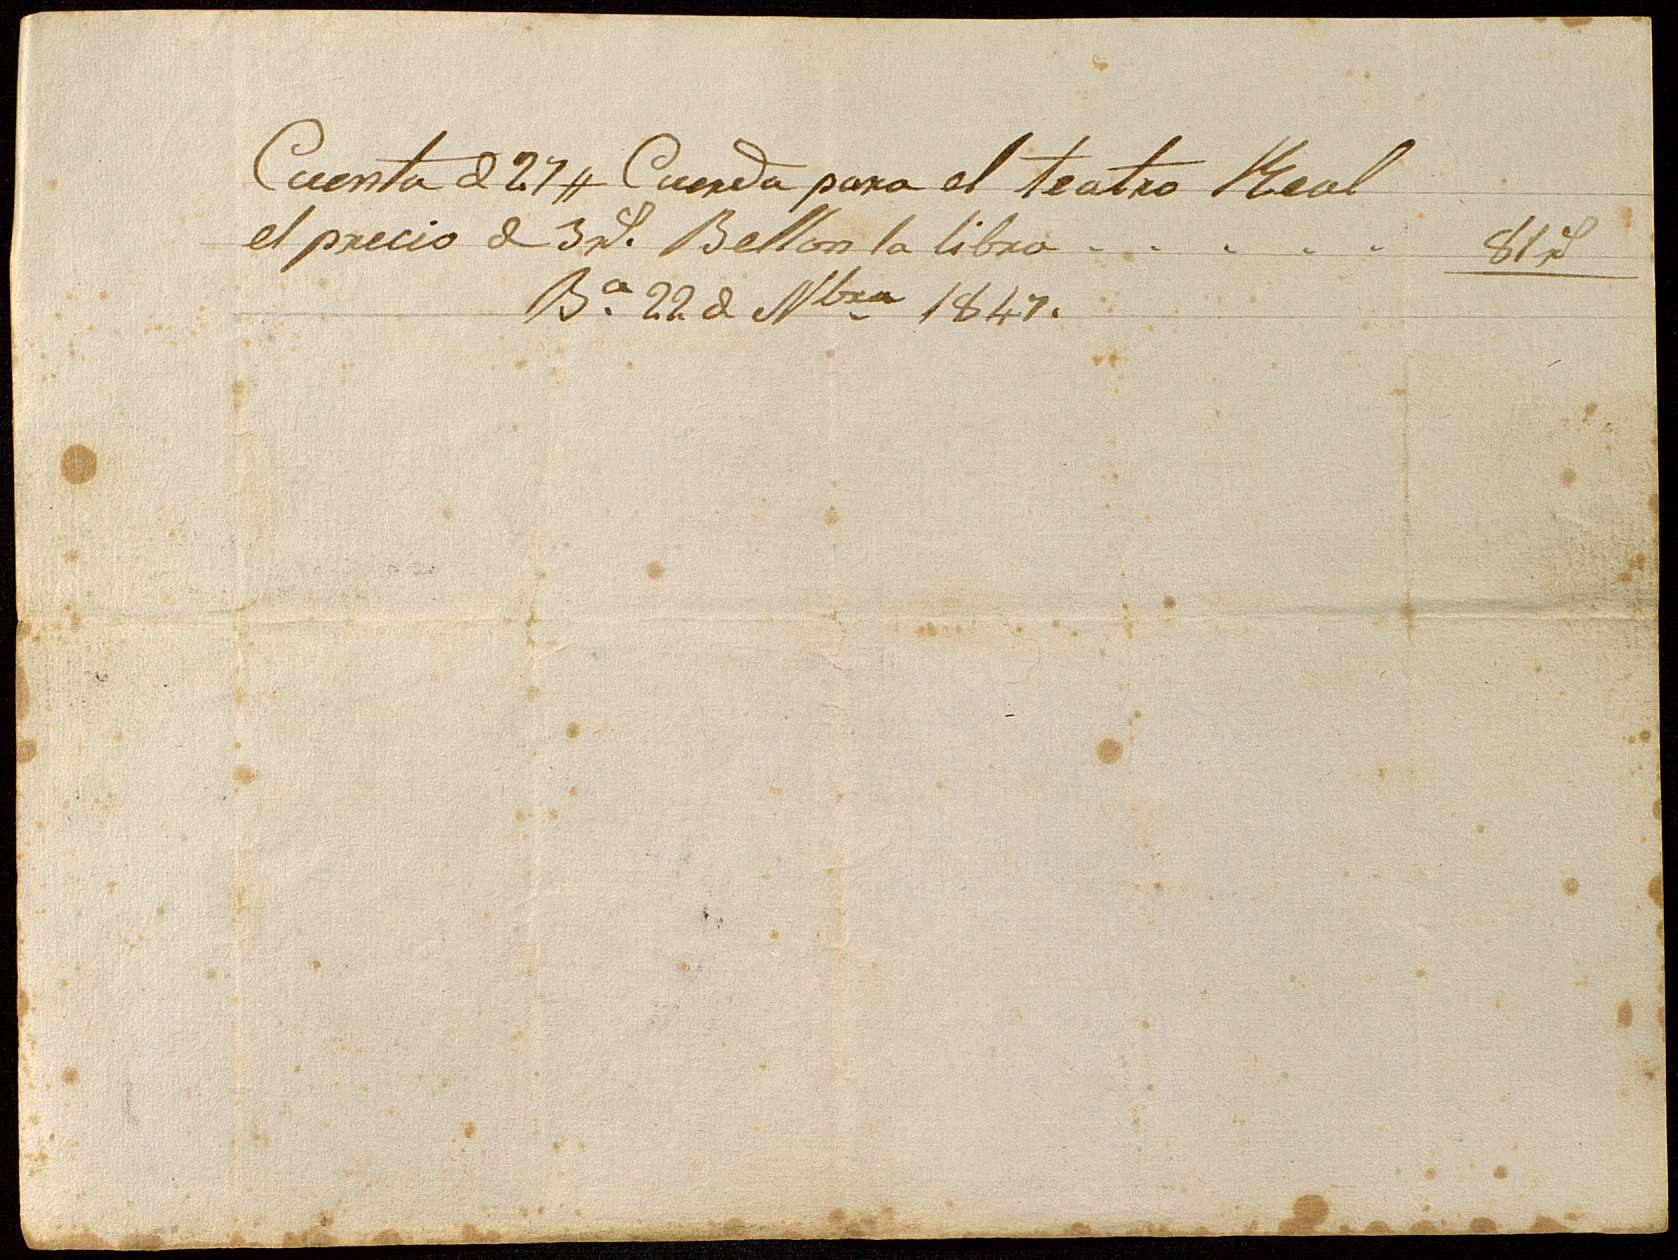 Cuenta d 27 # Cuerda para el teatro Real
el precio d 3 rs. Bellon la libra - - - - - 81 rs
Ba. 22 d Nbra 1847.